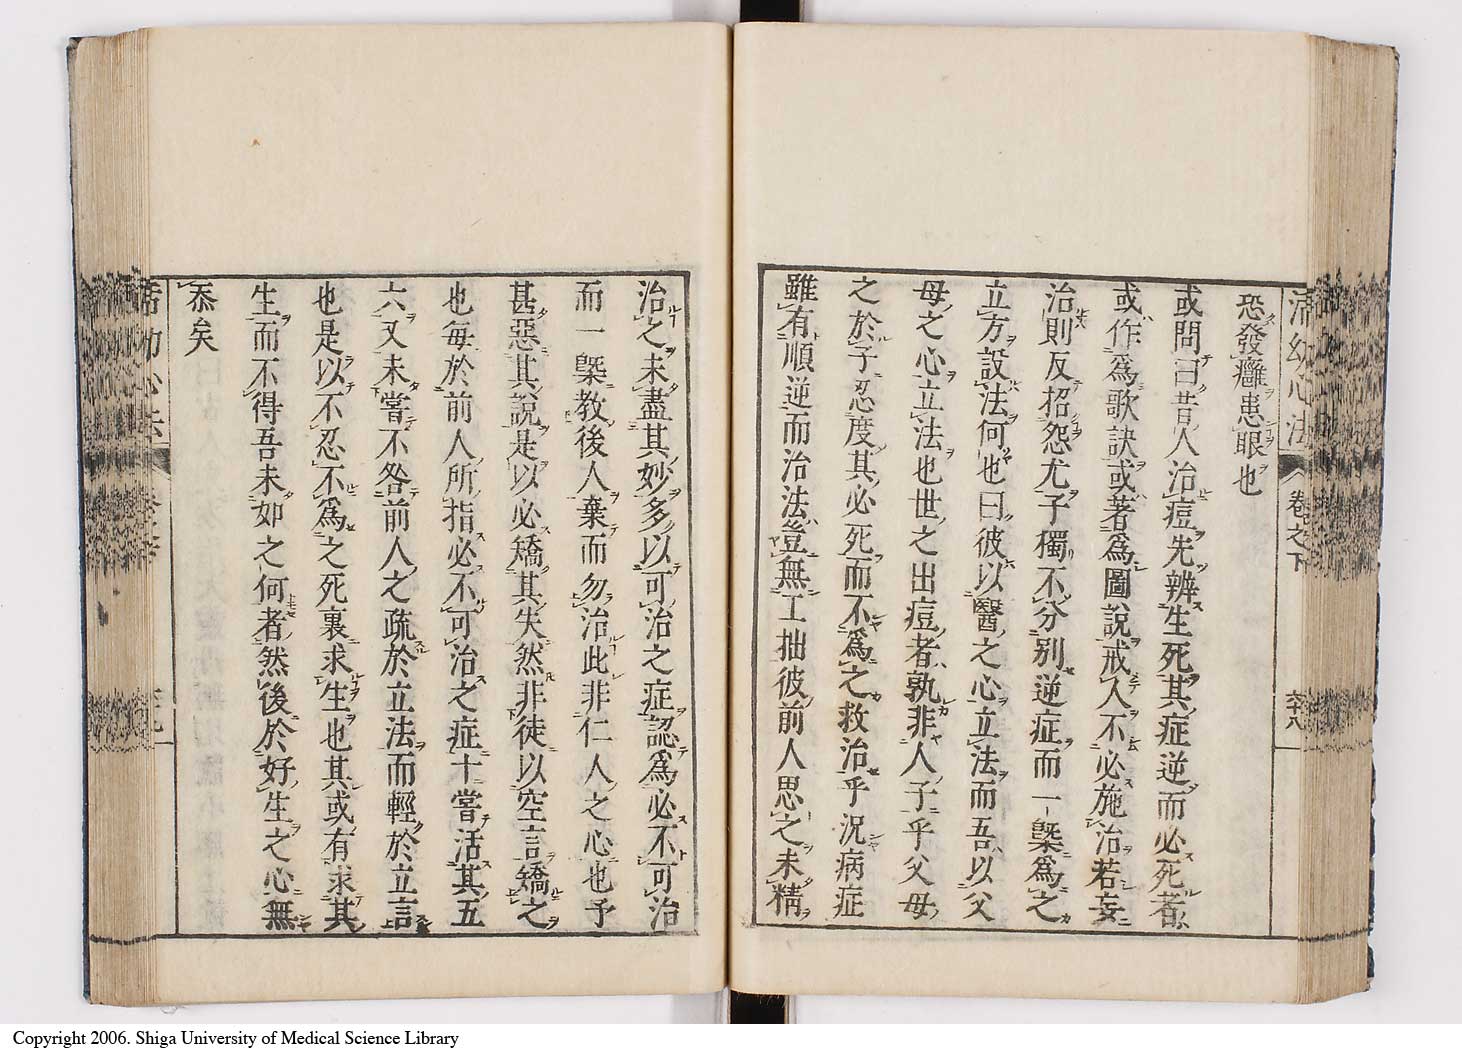 恐發癰患眼也
或問曰昔人治痘先辨生死其症逆而必死者
或作爲歌訣或著爲圖說戒人不必施治若妄
治則反招怨尤子獨不分別逆症而一槩爲之
立方設法何也曰彼以醫之心立法而吾以父
母之心立法也世之出痘者孰非人子乎父母
之於子忍度其必死而不爲之救治乎況病症
雖有順逆而治法豈無工拙彼前人思之未精
治之未盡其妙多以可治之症認爲必不可治
而一槩教後人棄而勿治此非仁人之心也予
甚惡其說是以必矯其失然非徒以空言矯之
也每於前人所指必不可治之症十嘗活其五
六又未嘗不咎前人之疏於立法而輕於立言
也是以不忍不爲之死裏求生也其或有求其
生而不得吾未如之何者然後於好生之心無
忝矣
卷之下
Copyright 2006. Shiga University of Medical Science Library